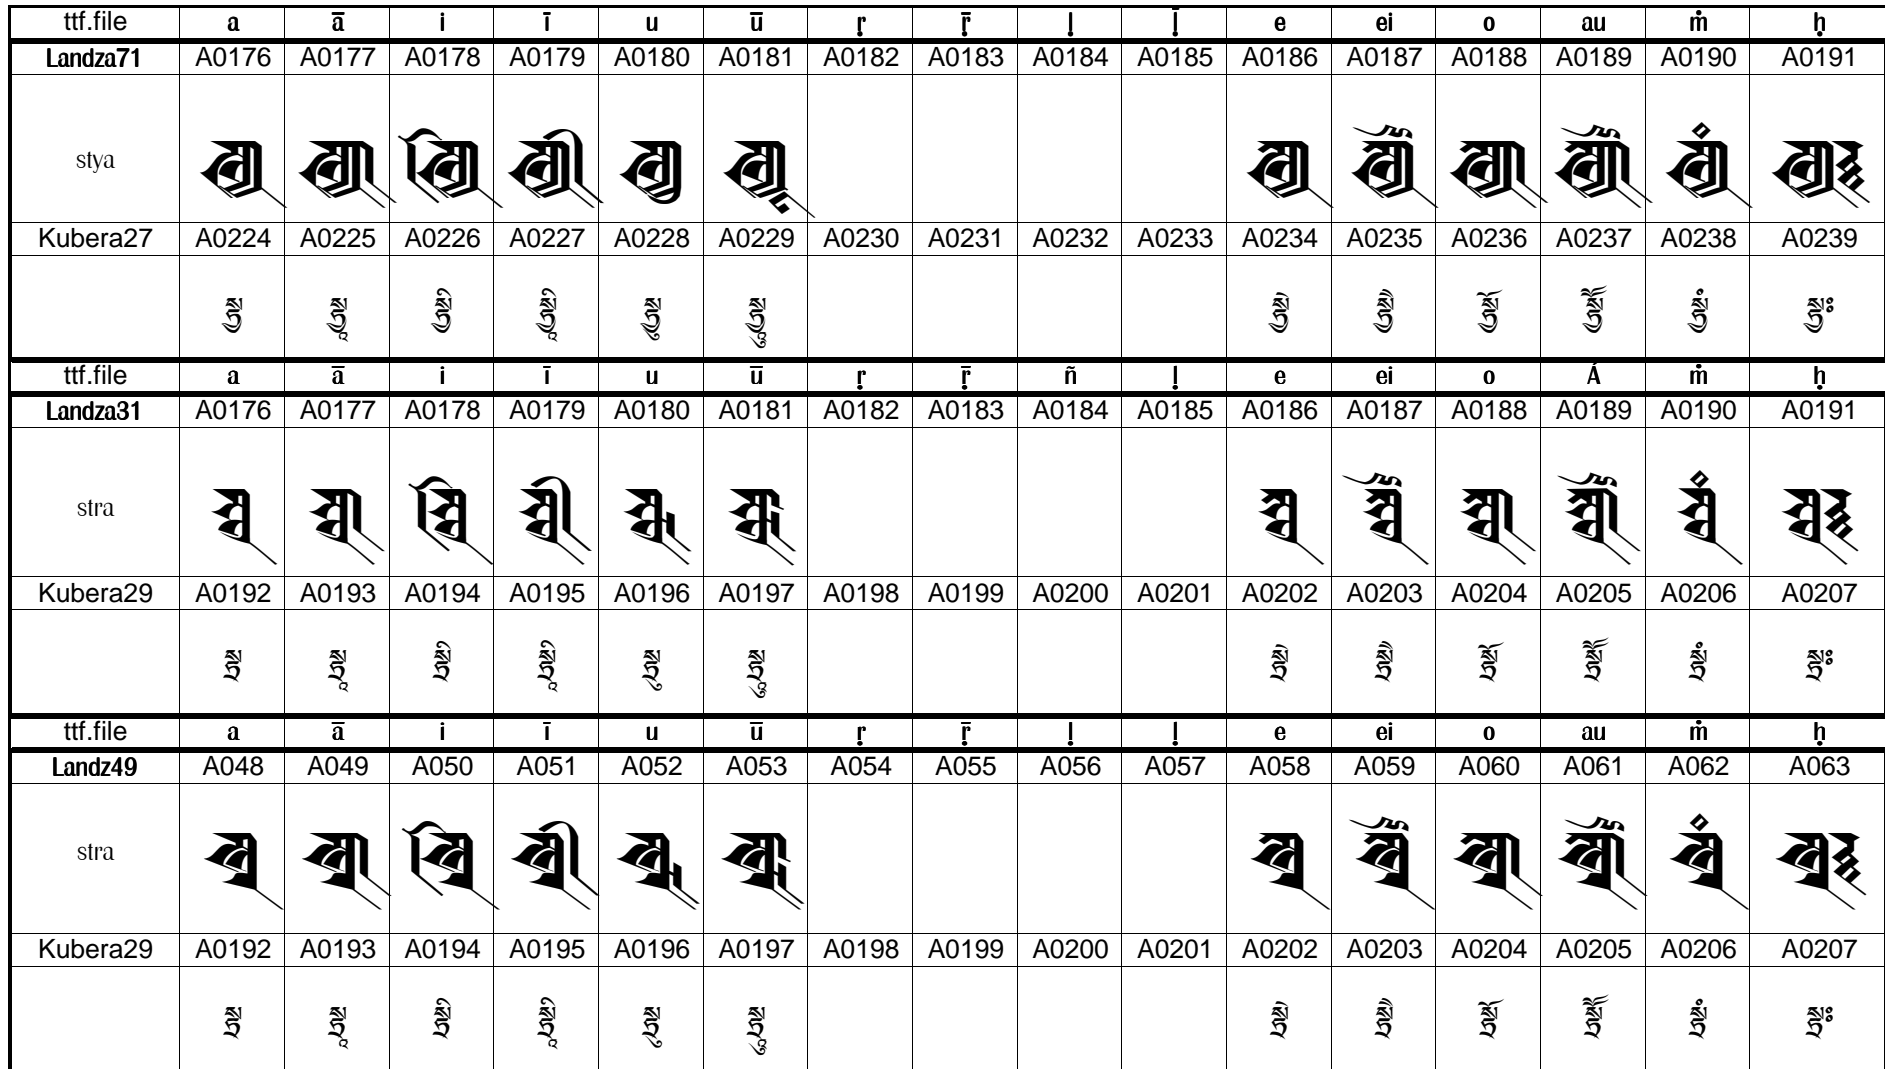 ttf.file a ā i ī u ū ṛ ṝ ḷ ḹ e ei o au ṁ ḥ
Landza71 A0176 A0177 A0178 A0179 A0180 A0181 A0182 A0183 A0184 A0185 A0186 A0187 A0188 A0189 A0190 A0191
stya
Kubera27 A0224 A0225 A0226 A0227 A0228 A0229 A0230 A0231 A0232 A0233 A0234 A0235 A0236 A0237 A0238 A0239
སྟྱ སྟྱཱ སྟྱི སྟྱཱི སྟྱུ སྟྱཱུ སྟྱེ སྟྱཻ སྟྱོ སྟྱཽ སྟྱཾ སྟྱཿ
ttf.file a ā i ī u ū ṛ ṝ ñ ḷ e ei o Á ṁ ḥ
Landza31 A0176 A0177 A0178 A0179 A0180 A0181 A0182 A0183 A0184 A0185 A0186 A0187 A0188 A0189 A0190 A0191
stra
Kubera29 A0192 A0193 A0194 A0195 A0196 A0197 A0198 A0199 A0200 A0201 A0202 A0203 A0204 A0205 A0206 A0207
སྟྲ སྟྲཱ སྟྲི སྟྲཱི སྟྲུ སྟྲཱུ སྟྲེ སྟྲཻ སྟྲོ སྟྲཽ སྟྲཾ སྟྲཿ
ttf.file a ā i ī u ū ṛ ṝ ḷ ḷ e ei o au ṁ ḥ
Landz49 A048 A049 A050 A051 A052 A053 A054 A055 A056 A057 A058 A059 A060 A061 A062 A063
stra
Kubera29 A0192 A0193 A0194 A0195 A0196 A0197 A0198 A0199 A0200 A0201 A0202 A0203 A0204 A0205 A0206 A0207
སྟྲ སྟྲཱ སྟྲི སྟྲཱི སྟྲུ སྟྲཱུ སྟྲེ སྟྲཻ སྟྲོ སྟྲཽ སྟྲཾ སྟྲཿ